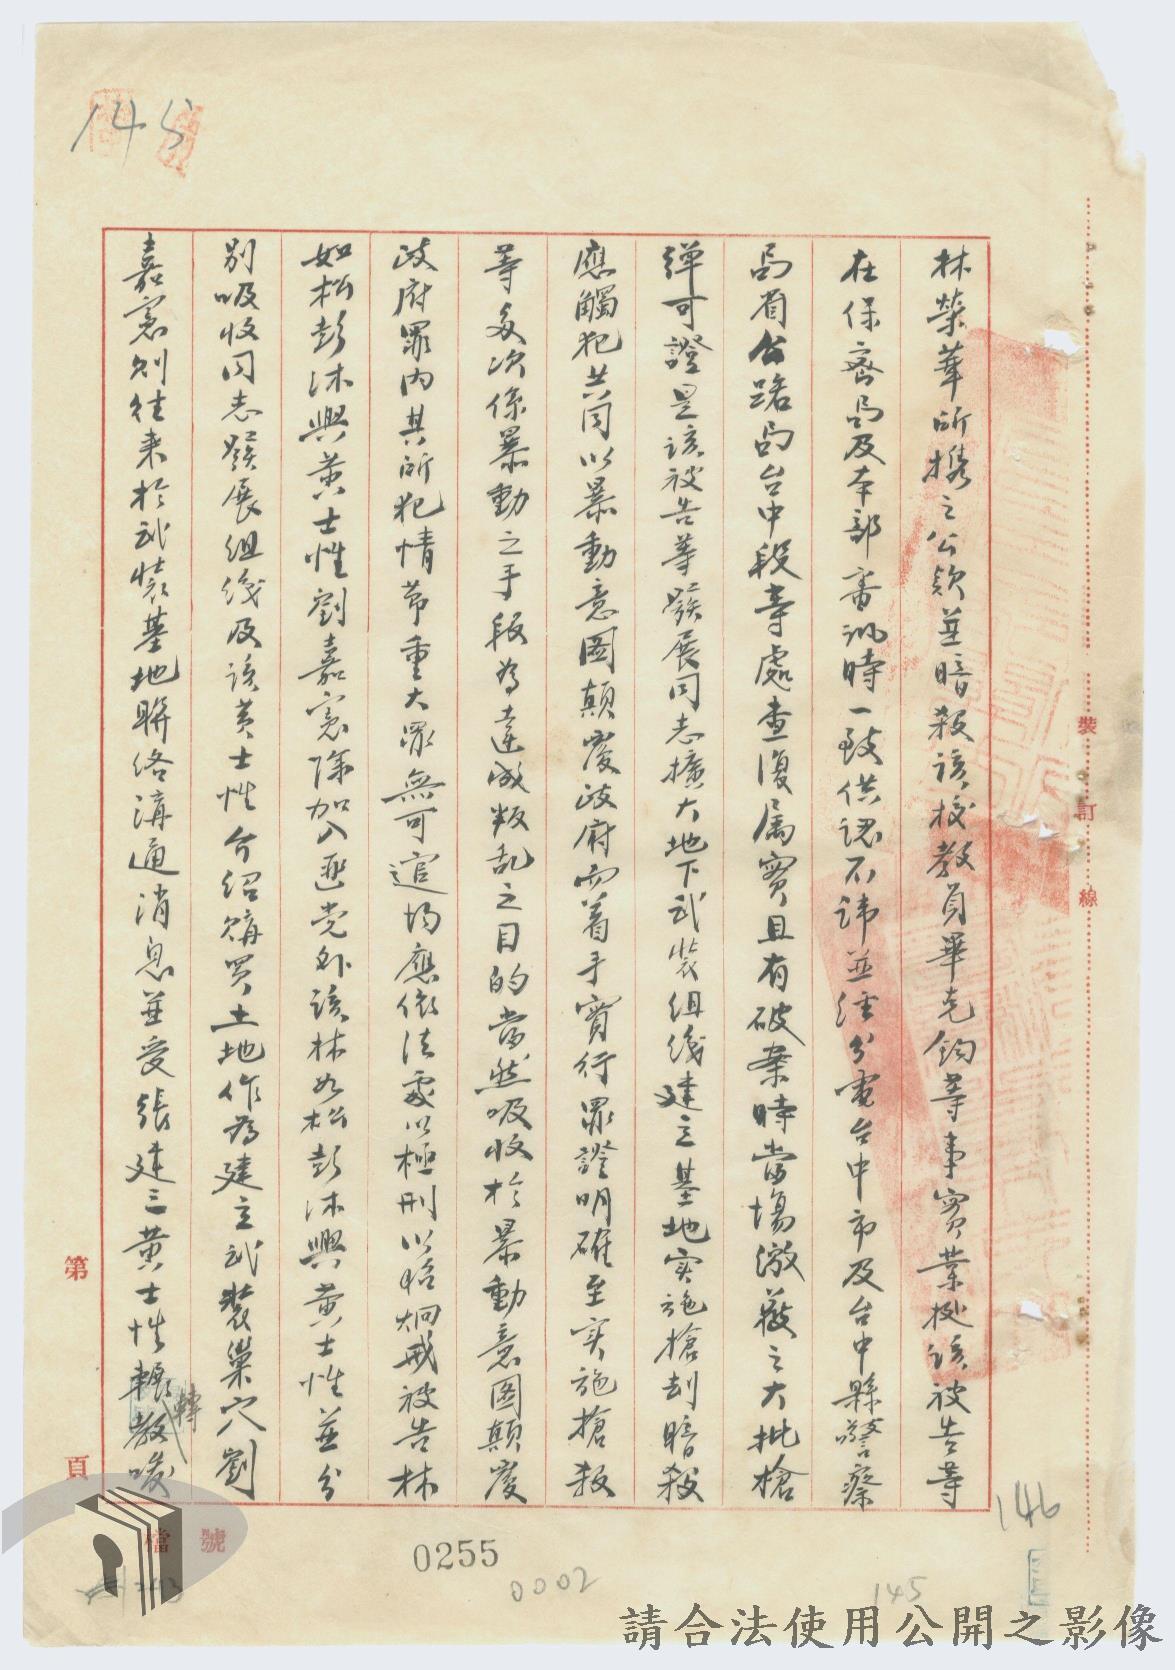 145
林榮華所攜之公款並暗殺該校教員畢克鈞等事實業據該被告等
在保密局及本部審訊時一致供認不諱並經分電台中市及台中縣警察
局省公路局台中段等處查復属實且有破案時當場繳獲之大批槍
彈可證是該被告等發展同志擴大地下武裝組織建立基地实施搶刦暗殺
應觸犯共同以暴動意圖顛覆政府而着手實行罪證明確至实施搶殺
等多次係暴動之手段為達成叛乱之目的當然吸收於暴動意圖顛覆
政府罪內其所犯情節重大罪無可逭均應依法處以極刑以昭炯戒被告林
如松彭沐興黃士性劉嘉憲除加入匪党外該林如松彭沐興黃士性並分
别吸收同志發展组織及該黃士性介绍購買土地作為建立武裝巢穴劉
嘉憲則往来於武裝基地聯络溝通消息並受張建三黃士性轉教唆
轉
裝
訂
線
第
頁
檔
號
146
0255
0002
145
請合法使用公開之影像